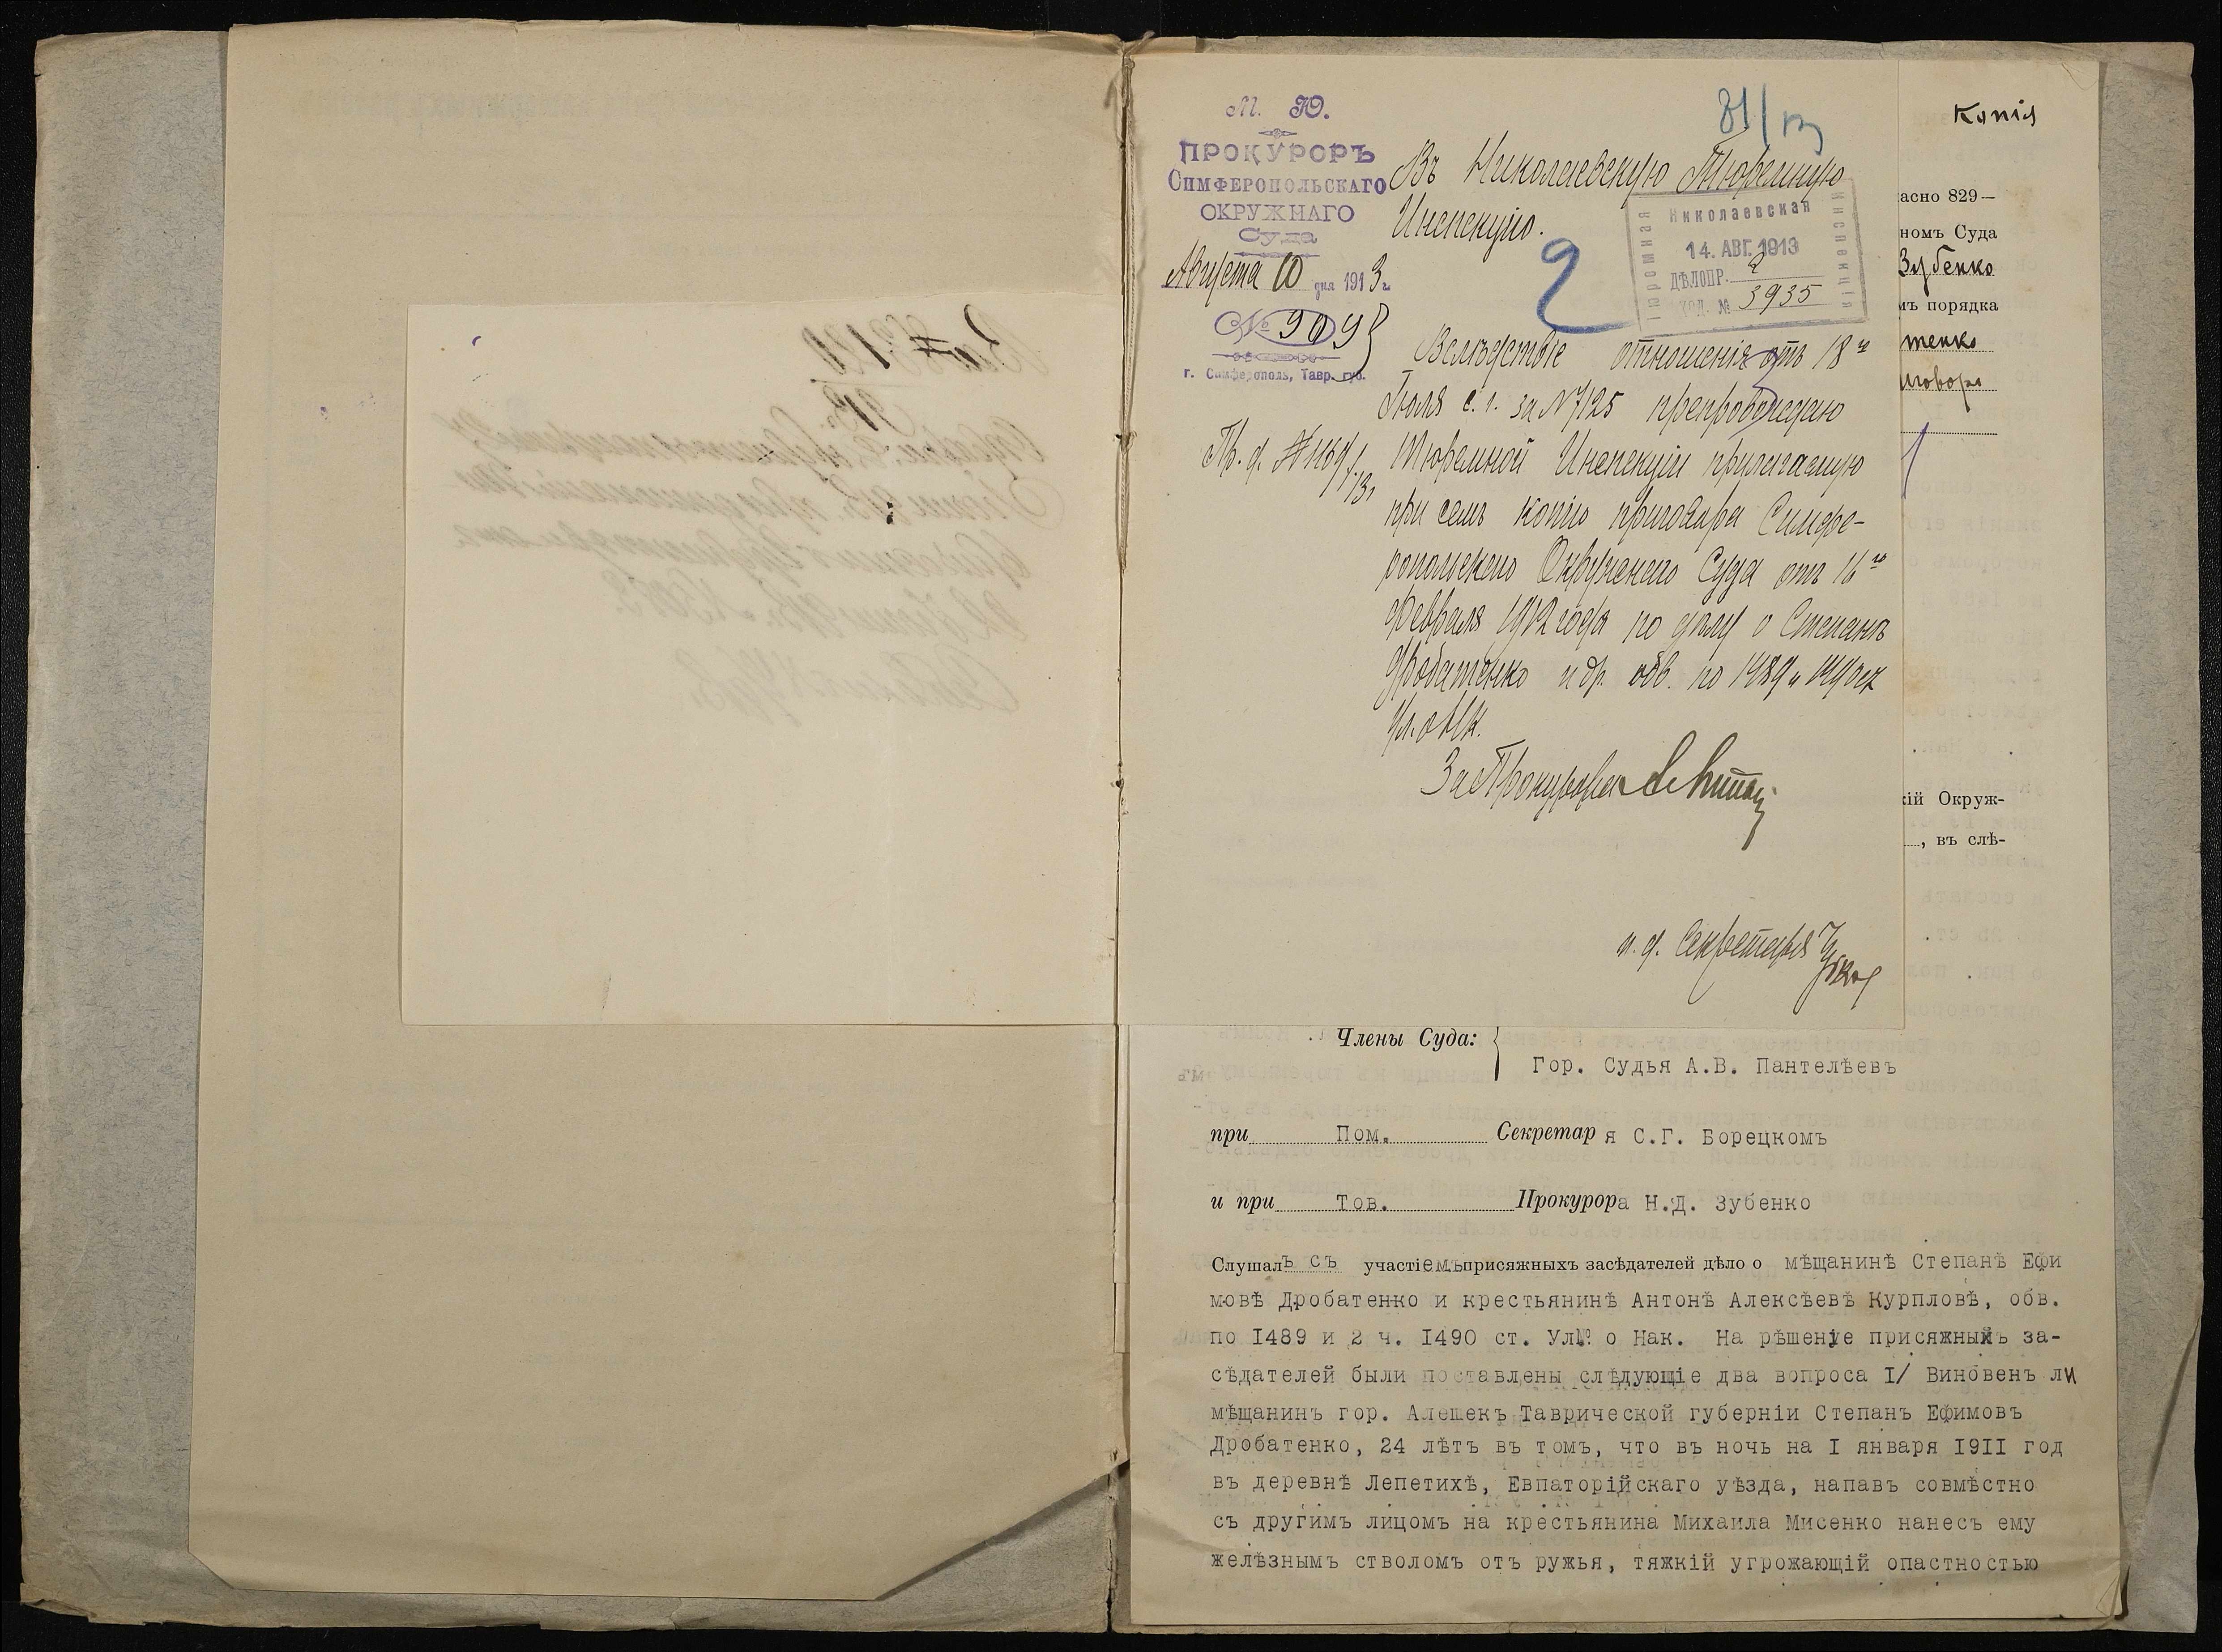 М. Ю.
ПРОКУРОРЪ
СИМФЕРОПОЛЬСКАГО
ОКРУЖНАГО
Суда
Августа 10 дня 1913 г.
№ 9095
г. Симферополь, Тавр. губ.
81/13
Въ Николаевскую Тюремную
Инспекцію.
Николаевская
тюремная
инспекція
14. АВГ. 1913
ДѢЛОПР. 2
ХОД. № 3935
2
Вслѣдствіе отношенія отъ 18го
Іюля с. г. за № 7125 препровождаю
Тюремной Инспекціи прилагаемую
при семъ копію приговора Симфе-
ропольскаго Окружнаго Суда отъ 16го
февраля 1912 года по дѣлу о Степанѣ
Дробатенко и др. обв. по 1489 и 1490 ст.
Ул. о Нак.
За Прокурора
и. д. Секретаря
Копія
асно 829—
номъ Суда
Зубенко
мъ порядка
тенко
иговора
кій Окруж-
, въ слѣ-
Члены Суда:
Гор. Судья А.В. Пантелѣевъ
при Пом. Секретаря С.Г. Борецкомъ
и при Тов. Прокурора Н.Д. Зубенко
Слушалъ съ участіемъ присяжныхъ засѣдателей дѣло о мѣщанинѣ Степанѣ Ефи
мовѣ Дробатенко и крестьянинѣ Антонѣ Алексѣевѣ Курпловѣ, обв.
по I489 и 2 ч. I490 ст. Ул. о Нак. На рѣшеніе присяжныхъ за-
сѣдателей были поставлены слѣдующіе два вопроса I/ Виновенъ ли
мѣщанинъ гор. Алешекъ Таврической губерніи Степанъ Ефимовъ
Дробатенко, 24 лѣтъ въ томъ, что въ ночь на I января I9II год
въ деревнѣ Лепетихѣ, Евпаторійскаго уѣзда, напавъ совмѣстно
съ другимъ лицомъ на крестьянина Михаила Мисенко нанесъ ему
желѣзнымъ стволомъ отъ ружья, тяжкій угрожающій опастностью